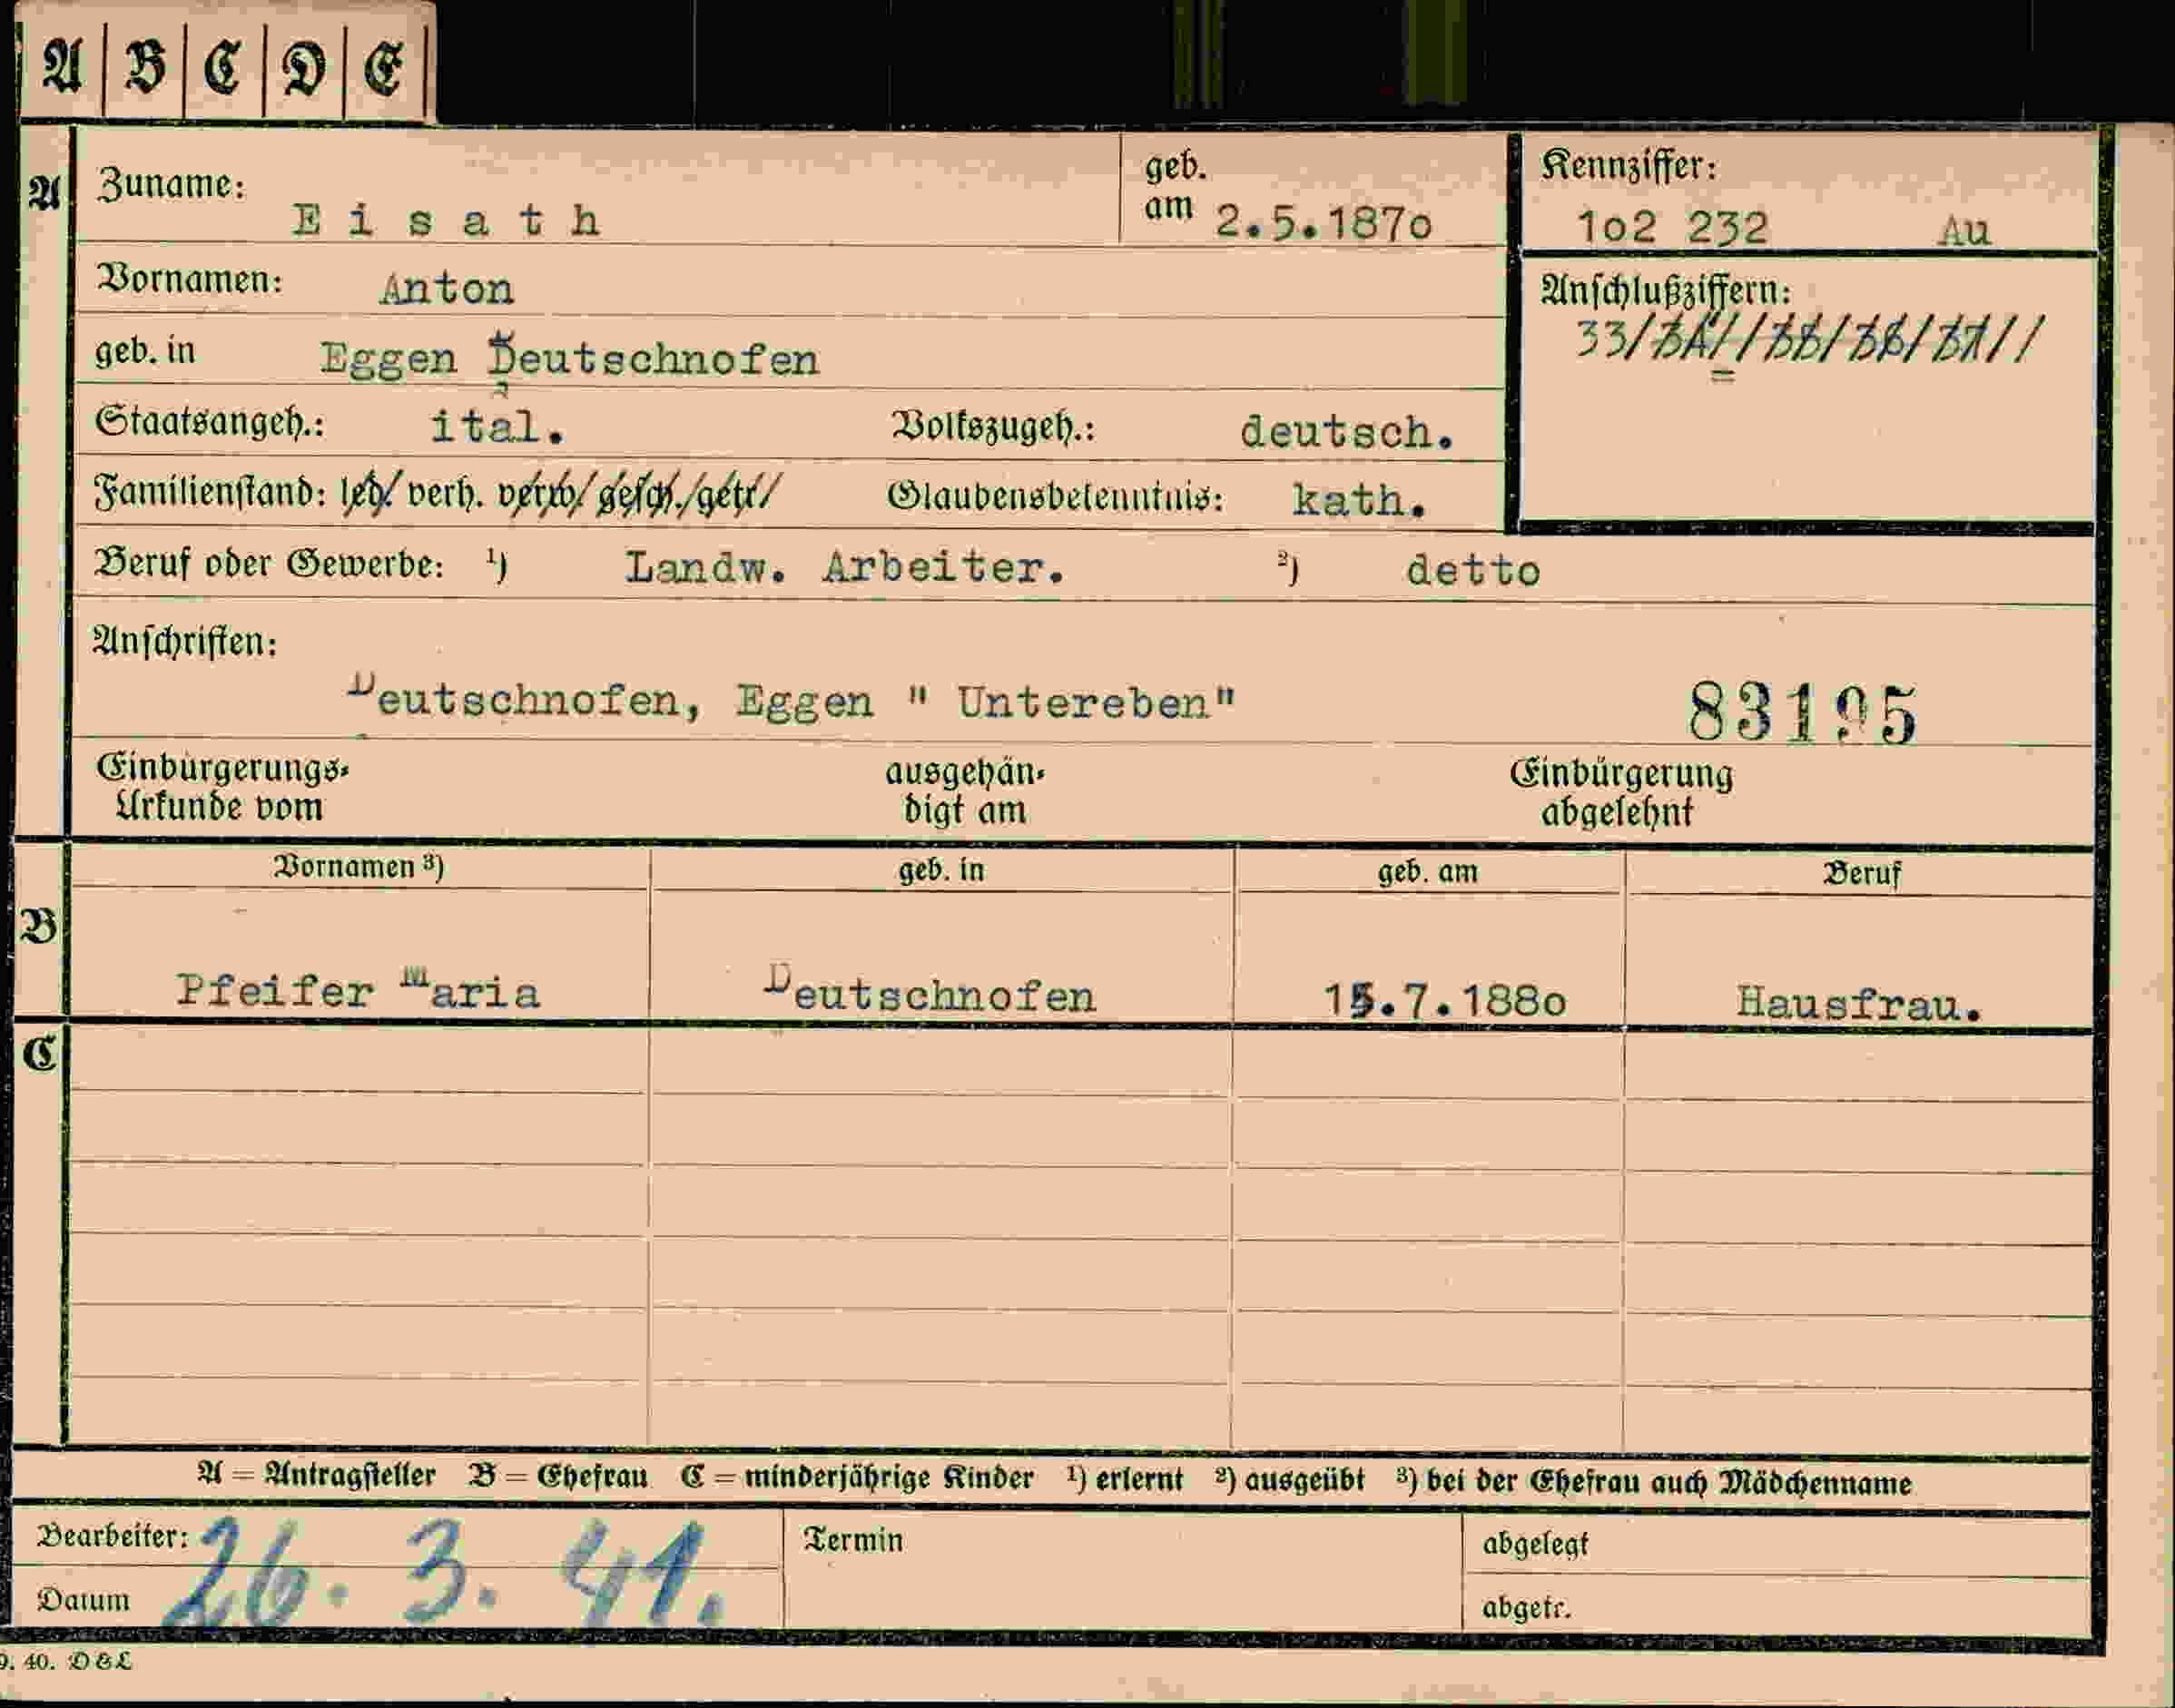 A B C D E
A Zuname: Eisath geb. am 2.5.1870 Kennziffer: 102 232 Au
Vornamen: Anton Anschlußziffern:
33/
geb. in Eggen Deutschnofen
Staatsangeh.: ital. Volkszugeh.: deutsch.
Familienstand: led. verh. verw. gesch./getr. Glaubensbekenntnis: kath.
Beruf oder Gewerbe: ¹) Landw. Arbeiter. ²) detto
Anschriften:
Deutschnofen, Eggen " Untereben" 83195
Einbürgerungs- ausgehän- Einbürgerung
Urkunde vom digt am abgelehnt
Vornamen ³) geb. in geb. am Beruf
B
Pfeifer Maria Deutschnofen 15.7.1880 Hausfrau.
C
A = Antragsteller B = Ehefrau C = minderjährige Kinder ¹) erlernt ²) ausgeübt ³) bei der Ehefrau auch Mädchenname
Bearbeiter: Termin abgelegt
26. 3. 41.
Datum abgetr.
9. 40. D&L